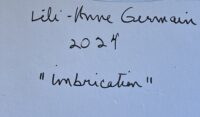 Lili-Anne Germain
2024
"imbrication"